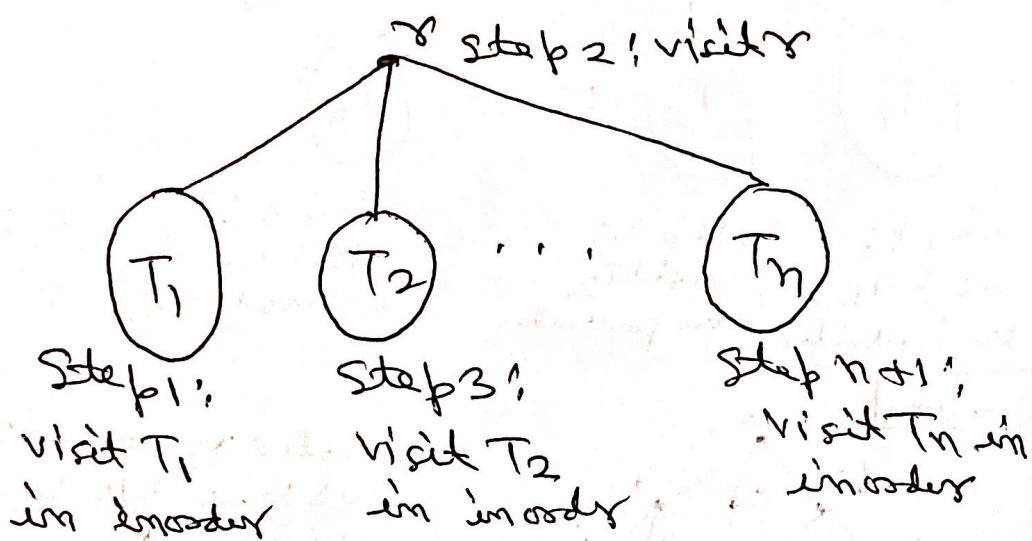 r step2: visit r
T1
T2
. . .
Tn
Step1:
visit T1
in inorder
Step3:
visit T2
in inorder
Step n+1:
visit Tn in
inorder